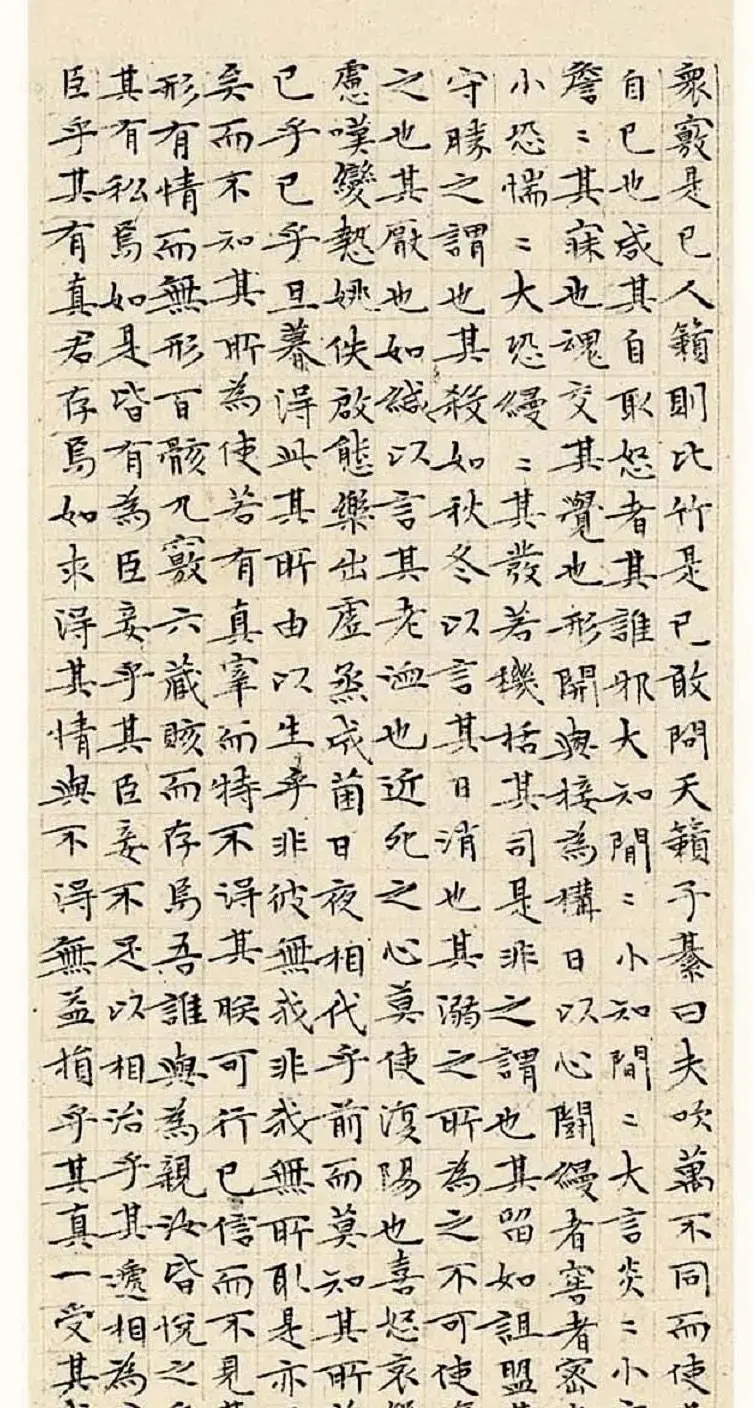 衆竅是已人籟則比竹是已敢問天籟子綦曰夫吹萬不同而使
自已也咸其自取怒者其誰邪大知閒〻小知間〻大言炎〻小
詹〻其寐也魂交其覺也形開與接為構日以心鬪縵者窖者密
小恐惴〻大恐縵〻其發若機栝其司是非之謂也其留如詛盟
守勝之謂也其殺如秋冬以言其日消也其溺之所為之不可使
之也其厭也如緘以言其老洫也近死之心莫使復陽也喜怒哀
慮嘆變慹姚佚啟態樂出虛蒸成菌日夜相代乎前而莫知其所
已乎已乎旦暮得此其所由以生乎非彼無我非我無所取是亦
矣而不知其所為使若有真宰而特不得其眹可行已信而不見
形有情而無形百骸九竅六藏賅而存焉吾誰與為親汝皆悅之
其有私焉如是皆有為臣妾乎其臣妾不足以相治乎其遞相為
臣乎其有真君存焉如求得其情與不得無益損乎其真一受其